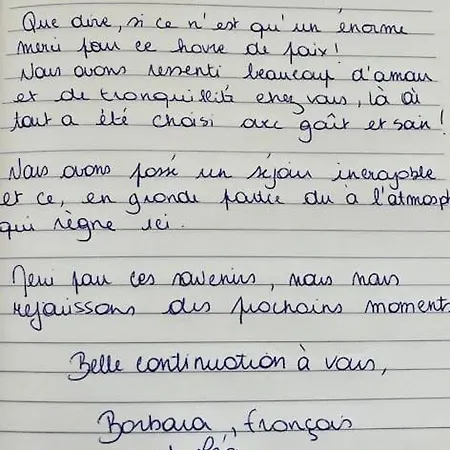 Que dire, si ce n'est qu'un énorme
merci pour ce havre de paix!
Nous avons ressenti beaucoup d'amour
et de tranquillité chez vous, là où
tout a été choisi avec goût et soin!
Nous avons passé un séjour incroyable
et ce, en grande partie du à l'atmosph
qui règne ici.
Merci pour ces souvenirs, nous nous
rejouissons des prochains moments
Belle continuation à vous,
Barbara, françois